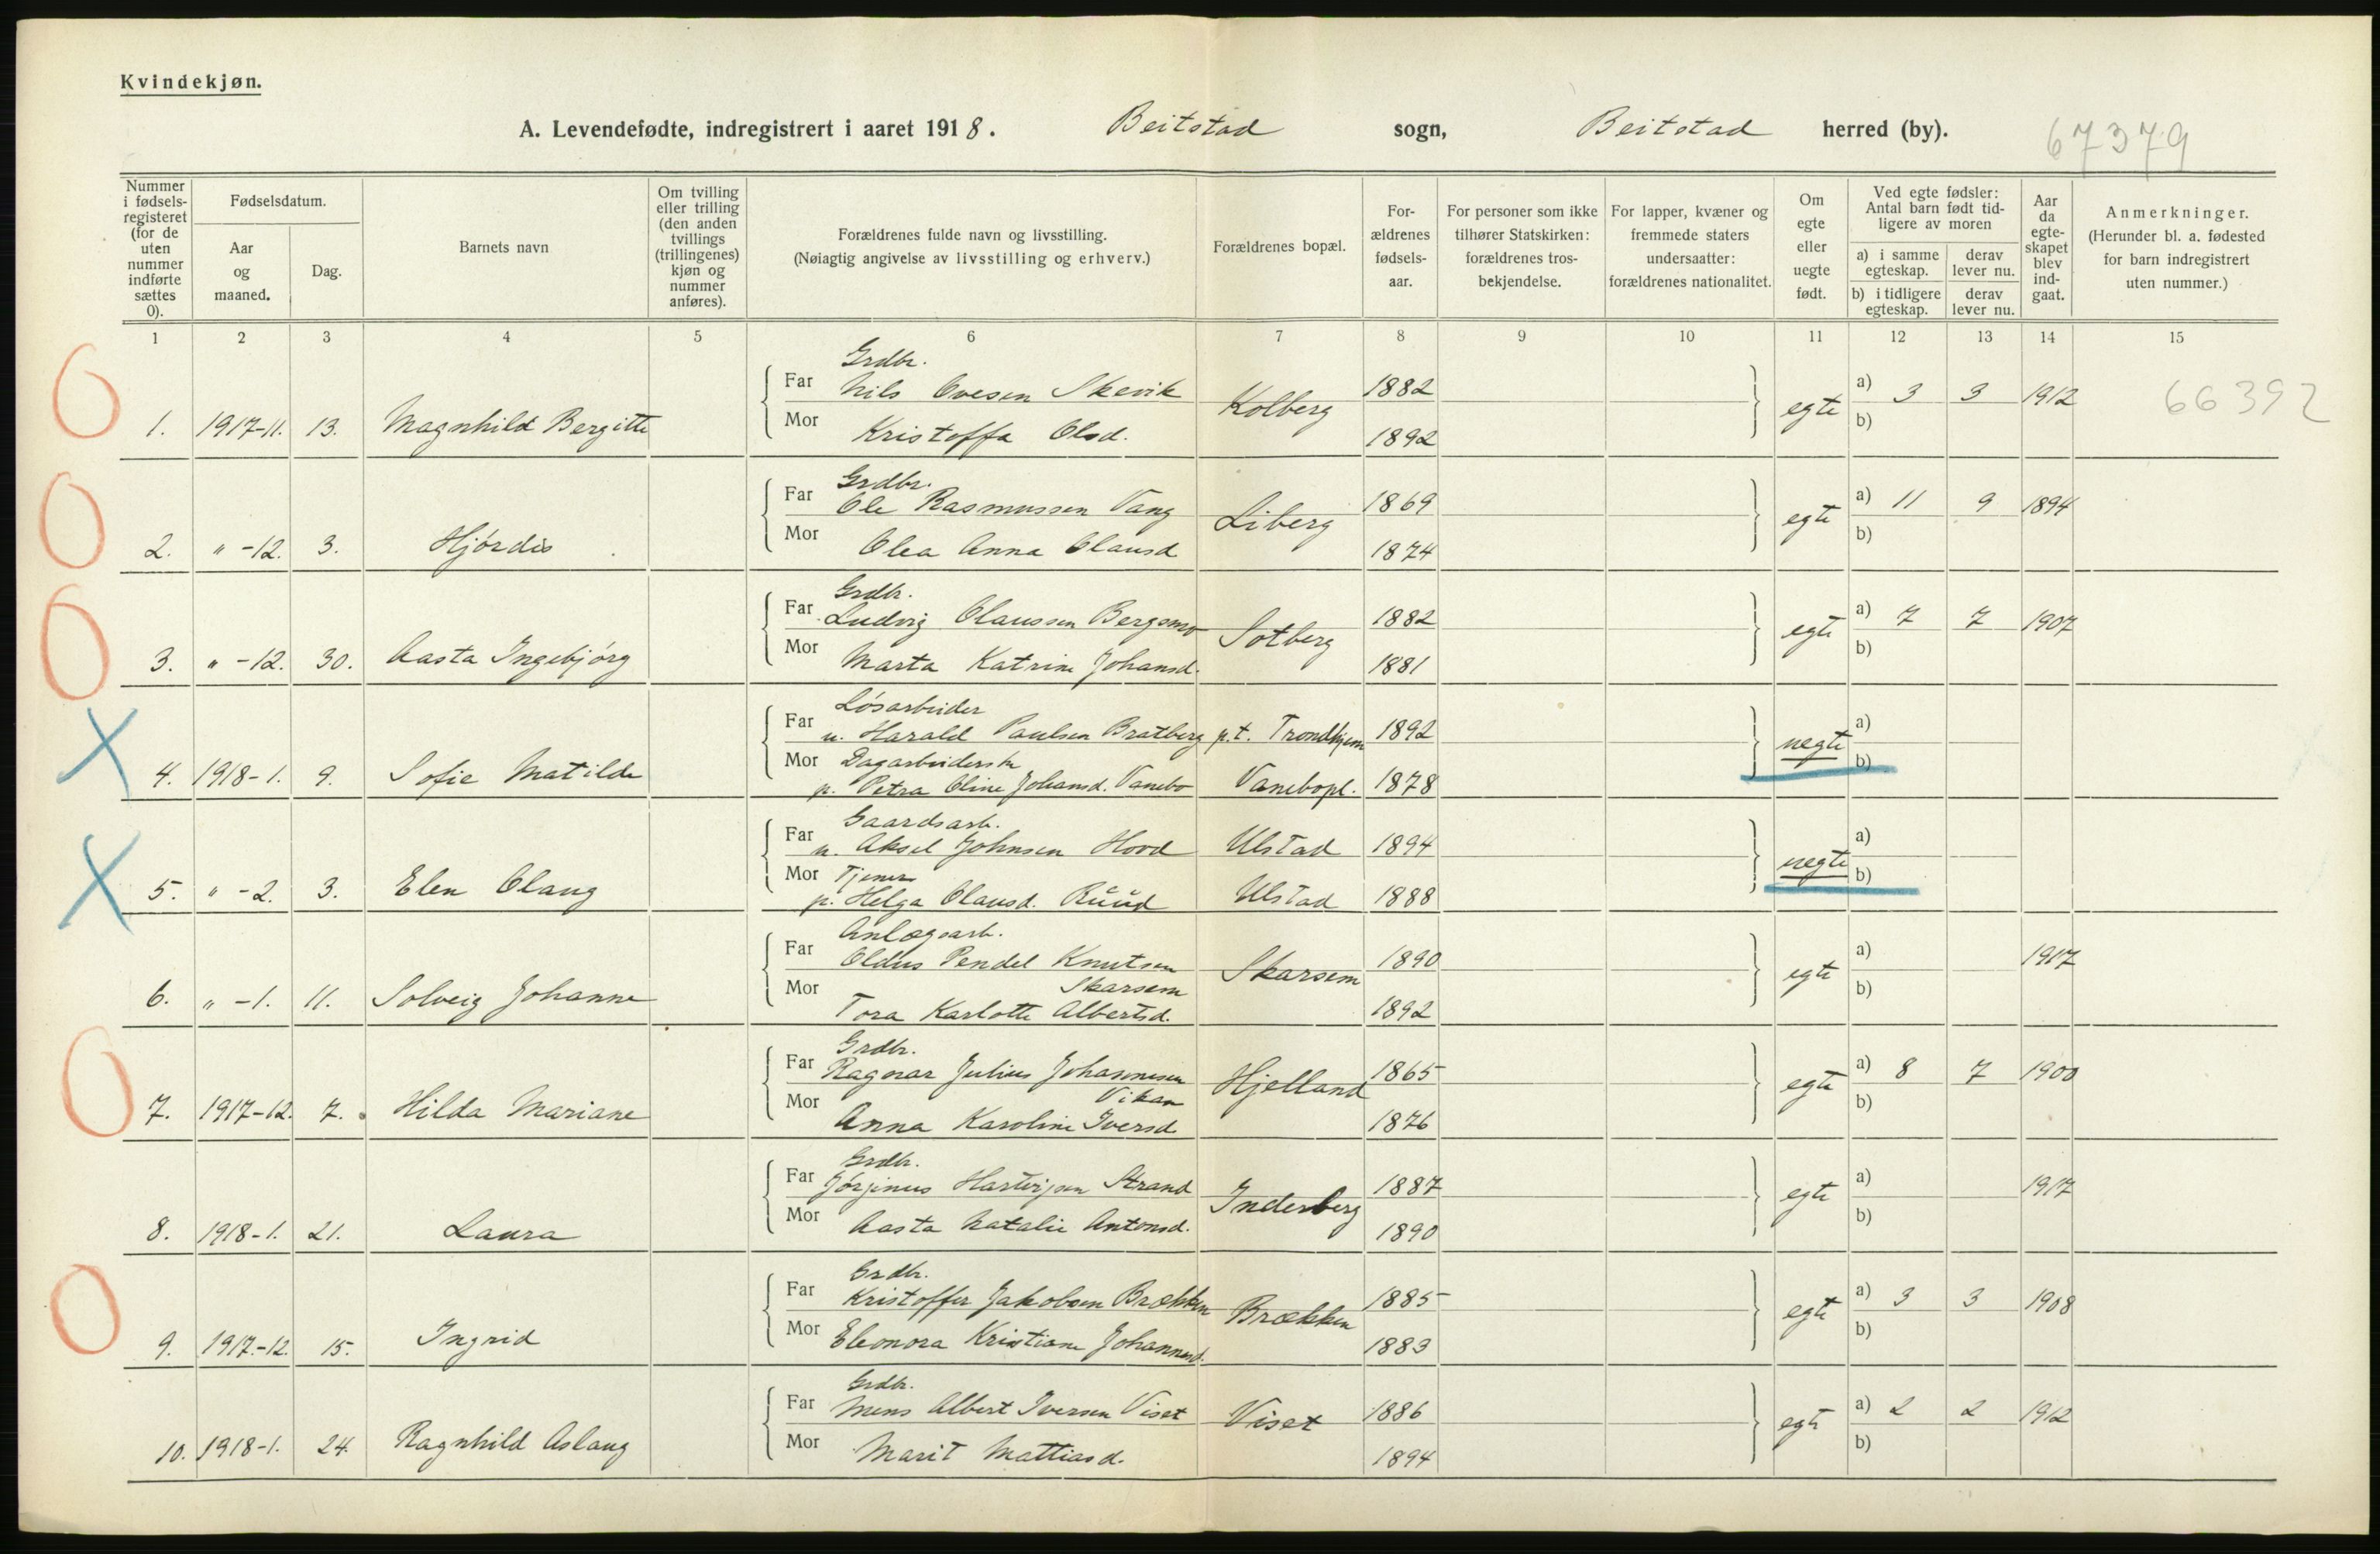 Kvindekjøn.
A. Levendefødte, indregistrert i aaret 1918. Beitstad sogn, Beitstad herred (by). 67379
Nummer i fødsels-registeret (for de uten nummer indførte sættes 0).
Fødselsdatum.
Aar og maaned.
Dag.
Barnets navn
Om tvilling eller trilling (den anden tvillings (trillingenes) kjøn og nummer anføres).
Forældrenes fulde navn og livsstilling. (Nøiagtig angivelse av livsstilling og erhverv.)
Forældrenes bopæl.
For-ældrenes fødsels-aar.
For personer som ikke tilhører Statskirken: forældrenes tros-bekjendelse.
For lapper, kvæner og fremmede staters undersaatter: forældrenes nationalitet.
Om egte eller uegte født.
Ved egte fødsler: Antal barn født tid-ligere av moren
a) i samme egteskap. derav lever nu.
b) i tidligere egteskap. derav lever nu.
Aar da egte-skapet blev ind-gaat.
Anmerkninger. (Herunder bl. a. fødested for barn indregistrert uten nummer.)
1 2 3 4 5 6 7 8 9 10 11 12 13 14 15
Grdbr.
Far Nils Ovesen Skevik Kolberg 1882 egte a) 3 3 1912 66392
1. 1917-11. 13. Magnhild Bergitte Mor Kristoffa Olsd. 1892 b)
Grdbr.
Far Ole Rasmussen Vang Liberg 1869 egte a) 11 9 1894
2. " -12. 3. Hjördis Mor Olea Anna Olausd 1874 b)
Grdbr.
Far Ludvig Olaussen Bergsmo Sotberg 1882 egte a) 7 7 1907
3. " -12. 30. Aasta Ingebjörg Mor Marta Katrine Johansd. 1881 b)
Lösarbeider
Far u. Harald Paulsen Bratberg p.t. Trondhjem 1892 uegte a)
Mor Dagarbeiderske
4. 1918-1. 9. Sofie Matilde p. Petra Oline Johansd. Vanebo Vanebopl. 1878 b)
Gaardsarb.
Far u. Aksel Johnsen Hood Ulstad 1894 uegte a)
Mor Tjener
5. " -2. 3. Elen Olaug p. Helga Olausd. Ruud Ulstad 1888 b)
Anlægsarb.
Far Oldus Pendel Knutsen Skarsem 1890 egte a) 1917
Skarsem
6. " -1. 11. Solveig Johanne Mor Tora Karlotte Albertsd. 1892 b)
Grdbr.
Far Ragnar Julius Johannesen Hjelland 1865 egte a) 8 7 1900
Vikan
7. 1917-12. 7. Hilda Mariane Mor Anna Karoline Iversd 1876 b)
Grdbr.
Far Jörginus Hartvigsen Strand Inderberg 1887 egte a) 1917
8. 1918-1. 21. Laura Mor Aasta Natalie Antonsd. 1890 b)
Grdbr.
Far Kristoffer Jakobsen Brækken Brækken 1885 egte a) 3 3 1908
9. 1917.-12. 15. Ingrid Mor Eleonora Kristiane Johannesd. 1883 b)
Grdbr.
Far Mens Albert Iversen Viset Viset 1886 egte a) 2 2 1912
10. 1918-1. 24. Ragnhild Aslaug Mor Marit Mattiasd. 1894 b)